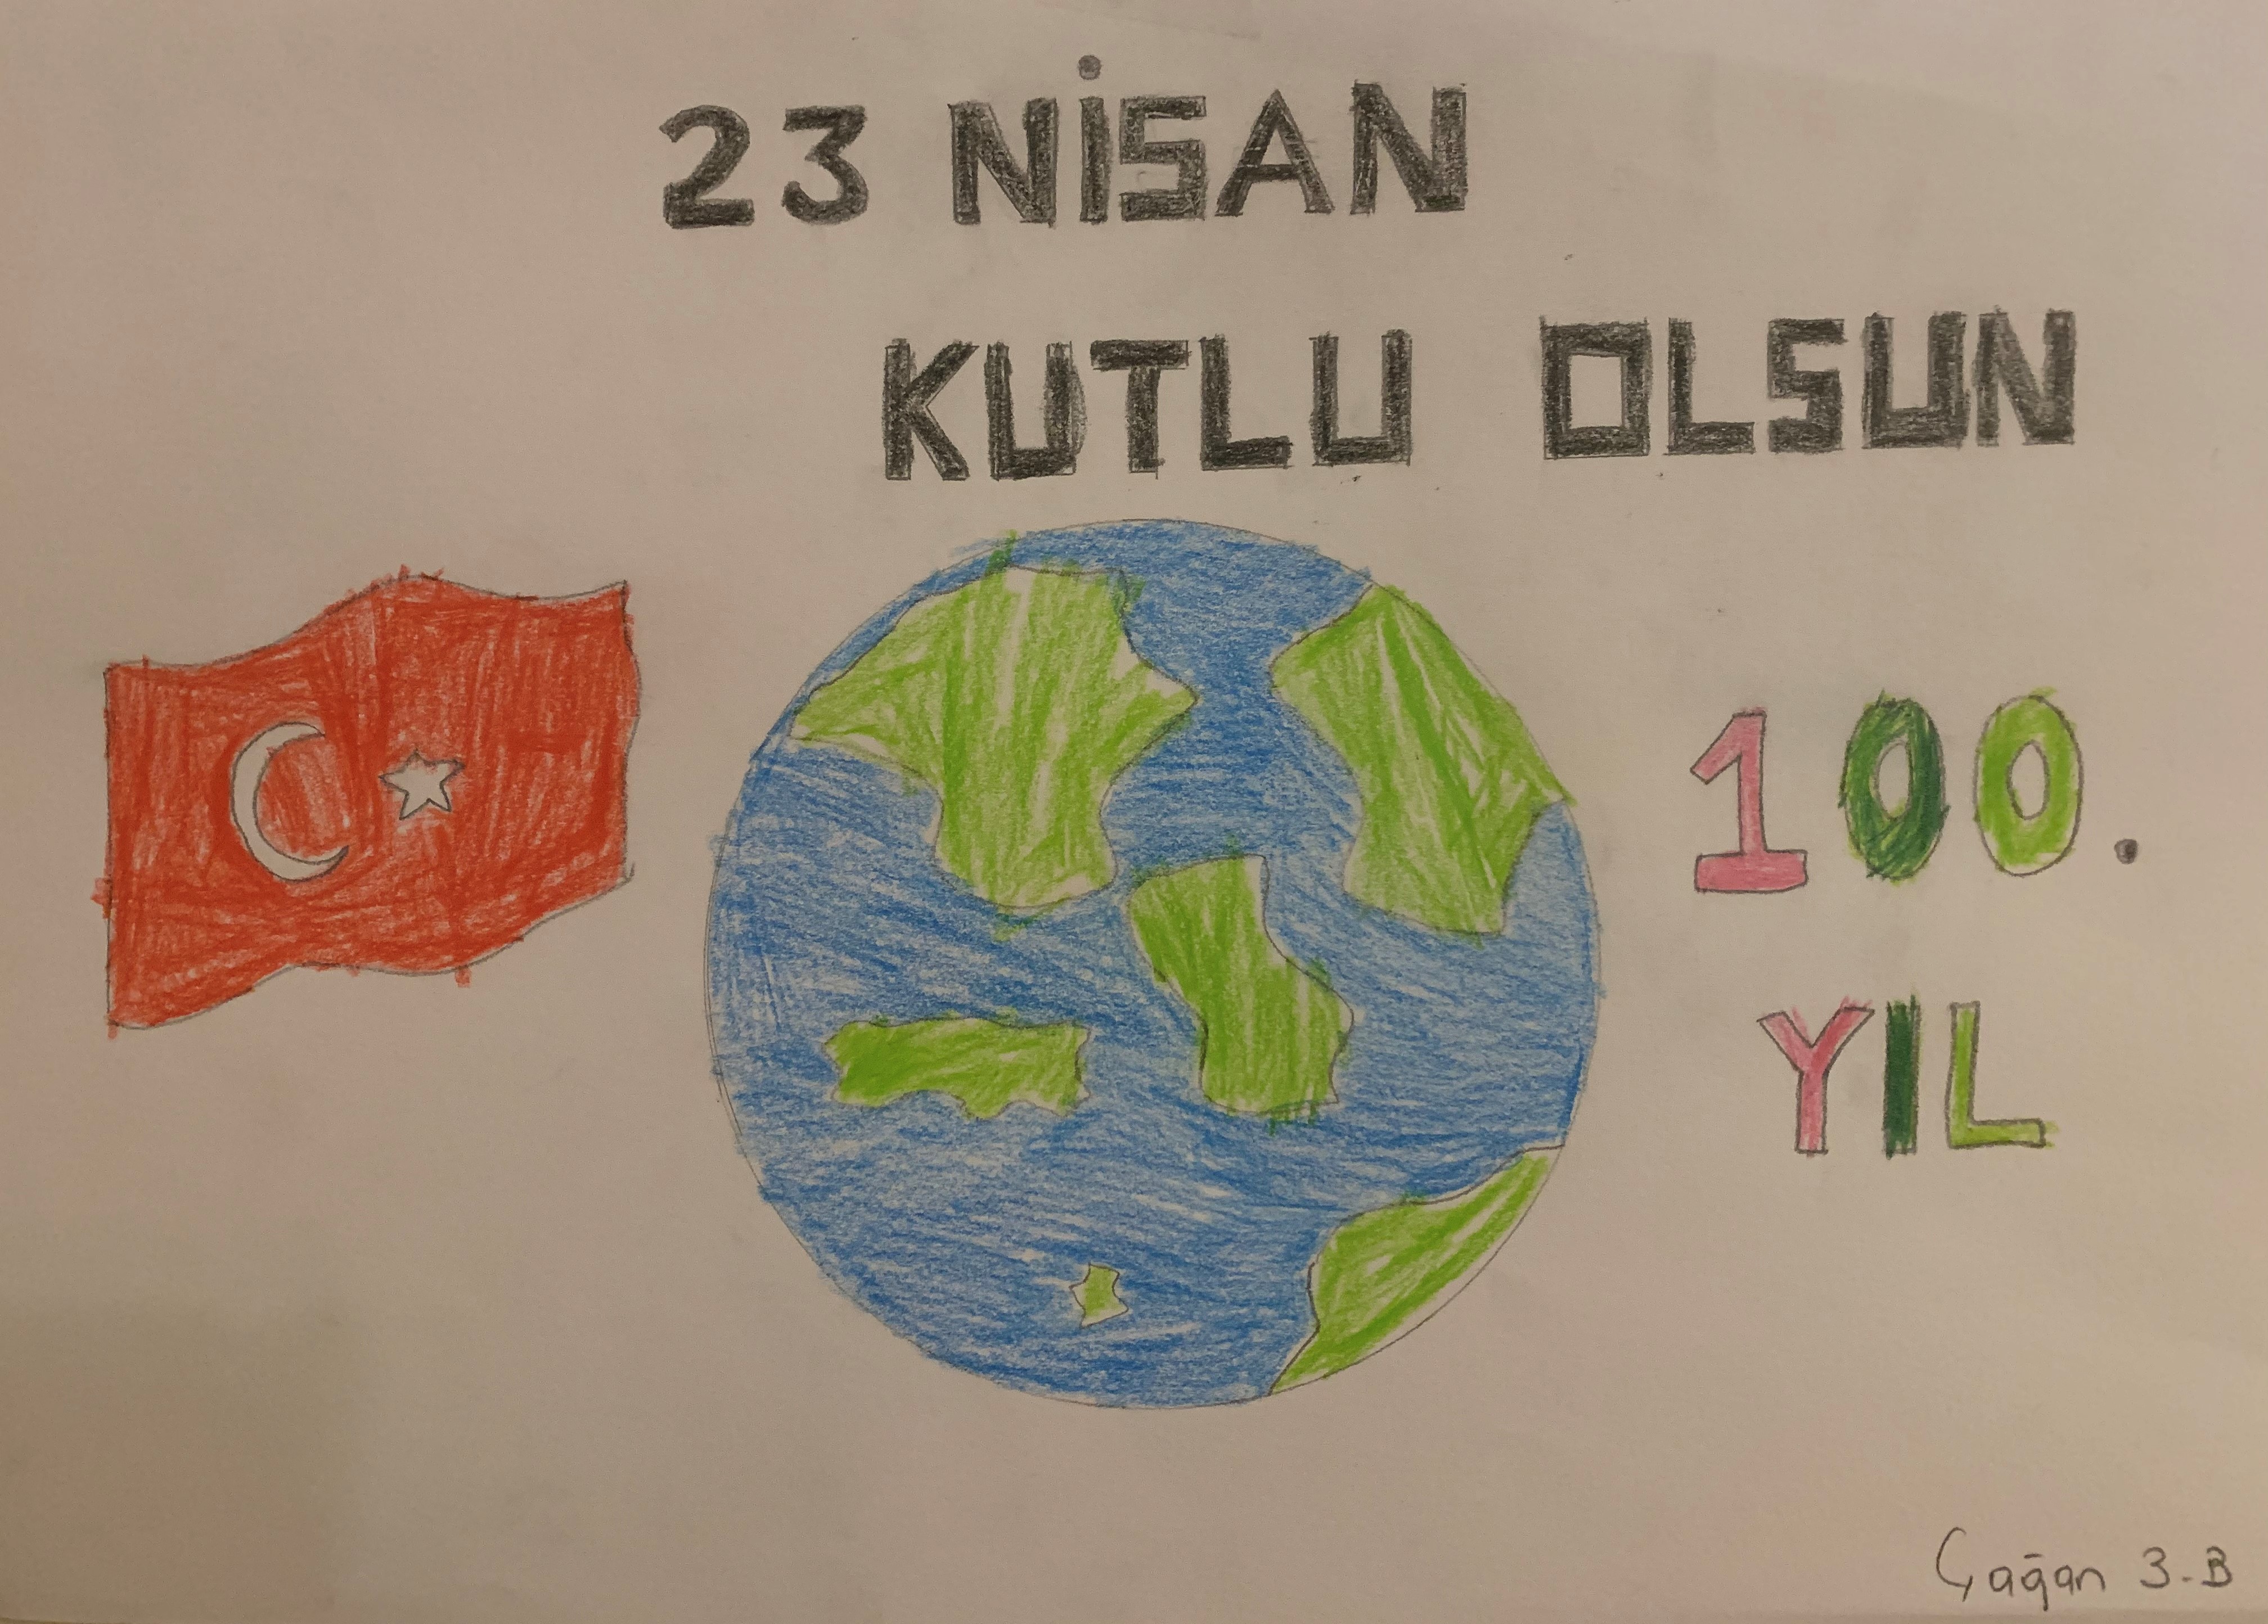 23 NİSAN
KUTLU OLSUN
100.
YIL
Çağan 3-B